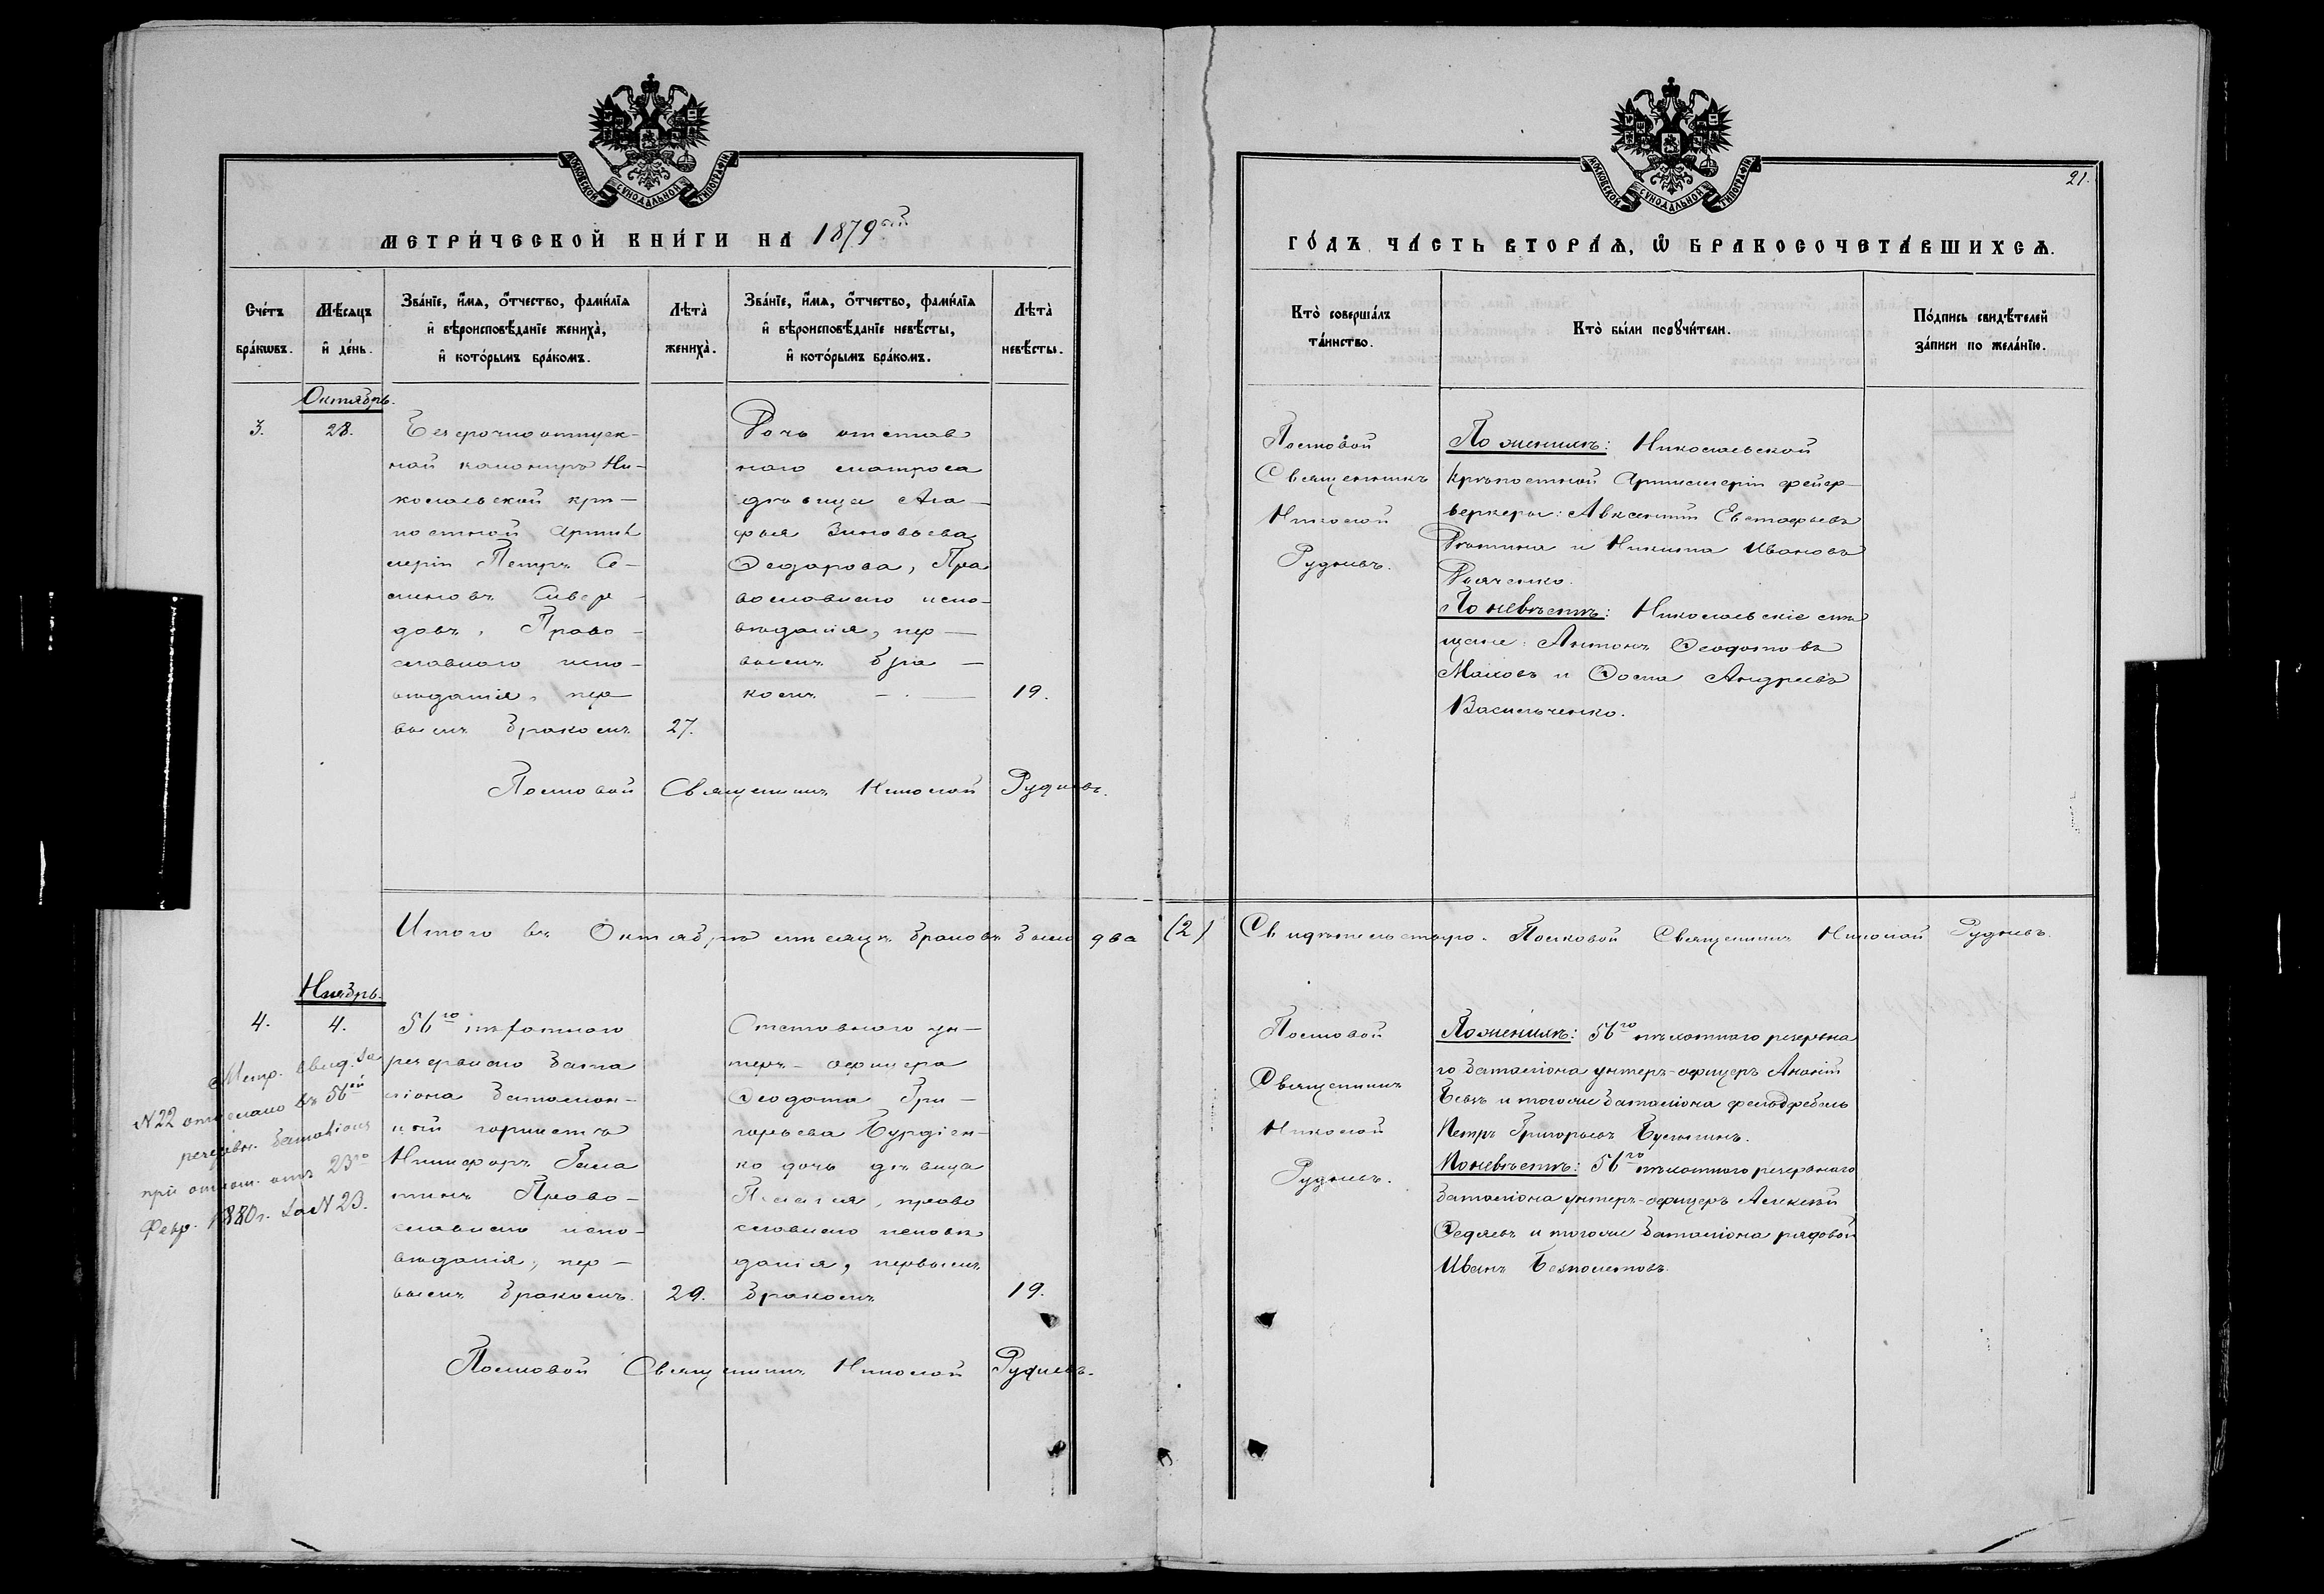 МОСКОВСКОЙ СУНОДАЛЬНОЙ ТИПОГРАФІИ.
МЕТРИ́ЧЕСКОЙ КНИ́ГИ НА 1879ый
Сче́тъ бра́кѡвъ.
Мѣ́сяцъ и҆ де́нь.
Зва́нїе, и҆́мѧ, ѻ҆́тчество, фами́лїѧ
и҆ вѣроисповѣ́данїе жениха̀,
и҆ кото́рымъ бра́комъ.
Лѣта̀
жениха̀.
Зва́нїе, и҆́мѧ, ѻ҆́тчество, фами́лїѧ
и҆ вѣроисповѣ́данїе невѣ́сты,
и҆ кото́рымъ бра́комъ.
Лѣта̀
невѣ́сты.
Октябрь.
3.
28.
Безсрочноотпуск-
ной канониръ Ни-
колаевской крѣ-
постной Артил
леріи Петръ Се-
меновъ
довъ, Право-
славнаго испо-
вѣданія, пер-
вымъ бракомъ
27.
Дочь отстав
наго матроса
дѣвица Ага-
фья Зиновьева
Ѳедорова, Пра
вославнаго испо-
вѣданія, пер-
вымъ бра-
комъ
19.
Полковой Священникъ Николай Рудневъ.
Итого въ Октябрѣ мѣсяцѣ браковъ было два (2)
Ноябрь.
4.
4.
56го пѣхотнаго
резервнаго бата
ліона баталіон-
ный горнистъ
Никифоръ
Право-
славнаго испо-
вѣданія, пер-
вымъ бракомъ.
29.
Отставного ун-
теръ-офицера
Ѳеодота Гри-
горьева Бурдіен-
ко дочь дѣвица
Пелагея, право
славнаго исповѣ
данія, первымъ
бракомъ
19.
Метр. свид. за
N 22 отослано въ 56ый
резервн. баталіонъ
при отнош. отъ 23го
Февр. 1880 г. за N 23.
Полковой Священникъ Николай Рудневъ.
МОСКОВСКОЙ СУНОДАЛЬНОЙ ТИПОГРАФІИ.
21.
ГО́ДЪ ЧА́СТЬ ВТОРА́Ѧ, Ѽ БРАКОСОЧЕТА́ВШИХСѦ.
Кто̀ соверша́лъ
та́инство.
Кто̀ бы́ли порꙋчи́тели.
По́дпись свидѣ́телей
за́писи по жела́нїю.
Полковой
Священникъ
Николай
Рудневъ.
По женихѣ: Николаевской
Крѣпостной Артиллеріи фейер-
веркеры: Авксентій Евстафьевъ
и Никита Ивановъ
По невѣстѣ: Николаевскіе мѣ
щане: Антонъ Ѳеодотовъ
и Ѳома Андреевъ
Васильченко.
Свидѣтельствую. Полковой Священникъ Николай Рудневъ.
Полковой
Священникъ
Николай
Рудневъ.
По женихѣ: 56го пѣхотнаго резервна
го баталіона унтеръ-офицеръ Ананій
и тогоже баталіона фельдфебель
Петръ Григорьевъ
По невѣстѣ: 56го пѣхотнаго резервнаго
баталіона унтеръ-офицеръ Алексѣй
и тогоже баталіона рядовой
Иванъ